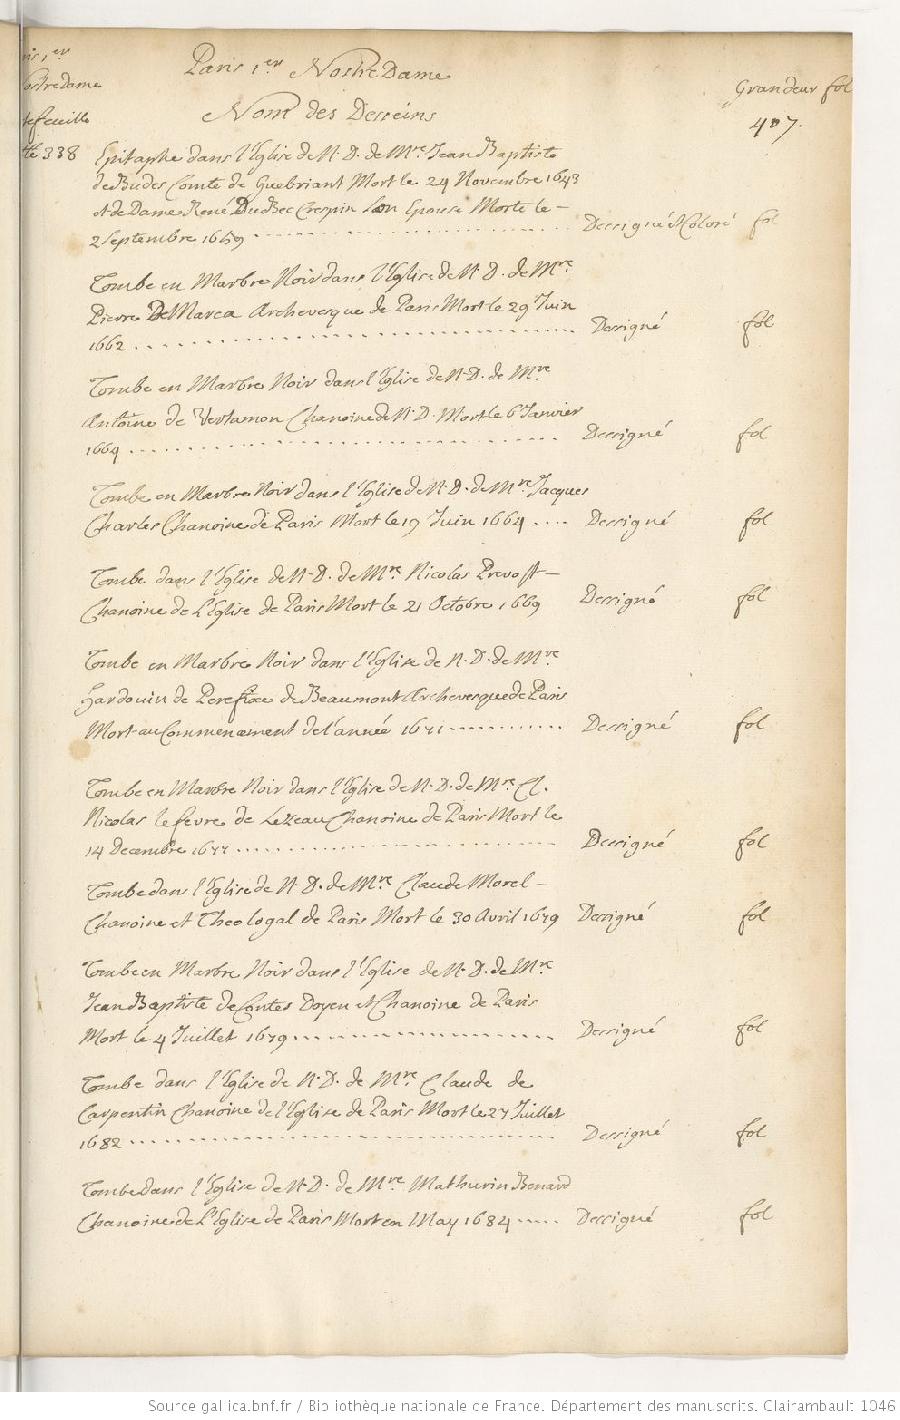 Paris 1er Nostre Dame
Grandeur fol
Nom des Desseins
407.
338
Epitaphe dans l'Eglise de N. D. de Mre Jean Baptiste
de Budes Comte de Guebriant Mort le 24 Novembre 1643
et de Dame René Du Bec Crespin Son Epouse Morte le
2 Septembre 1659 Dessigné et Coloré fol
Tombe en Marbre Noir dans l'Eglise de N. D. de Mre
Pierre De Marca Archevesque de Paris Mort le 29 Juin
1662 Dessigné fol
Tombe en Marbre Noir dans l'Eglise de N. D. de Mre
Antoine de Vertamon Chanoine de N. D. Mort le 6 Janvier
1664 Dessigné fol
Tombe en Marbre Noir dans l'Eglise de N. D. de Mre Jacques
Charles Chanoine de Paris Mort le 19 Juin 1664 Dessigné fol
Tombe dans l'Eglise de N. D. de Mre Nicolas Prevost
Chanoine de L'Eglise de Paris Mort le 21 Octobre 1669 Dessigné fol
Tombe en Marbre Noir dans l'Eglise de N. D. de Mre
Hardouin de Perefixe de Beaumont Archevesque de Paris
Mort au Commencement de l'année 1671 Dessigné fol
Tombe en Marbre Noir dans l'Eglise de N. D. de Mre Cl.
Nicolas le fevre de Lezeau Chanoine de Paris Mort le
14 Decembre 1677 Dessigné fol
Tombe dans l'Eglise de N. D. de Mre Claude Morel
Chanoine et Theologal de Paris Mort le 30 Avril 1679 Dessigné fol
Tombe en Marbre Noir dans l'Eglise de N. D. de Mre
Jean Baptiste de Contes Doyen et Chanoine de Paris
Mort le 4 Juillet 1679 Dessigné fol
Tombe dans l'Eglise de N. D. de Mre Claude de
Carpentin Chanoine de l'Eglise de Paris Mort le 27 Juillet
1682 Dessigné fol
Tombe dans l'Eglise de N. D. de Mre Mathurin Benard
Chanoine de L'Eglise de Paris Mort en May 1684 Dessigné fol
Source gallica.bnf.fr / Bibliothèque nationale de France. Département des manuscrits. Clairambault 1046